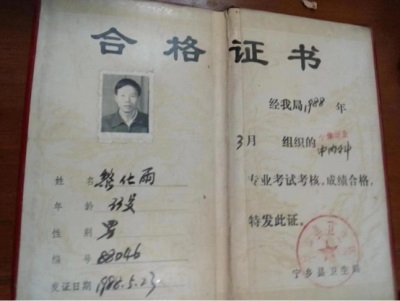 合格证书
姓名 黎仕雨
年龄
性别 男
编号 88046
发证日期 1988.5.23
经我局1988年
3月 组织的 中内科
专业考试考核,成绩合格,
特发此证。
宁乡县卫生局